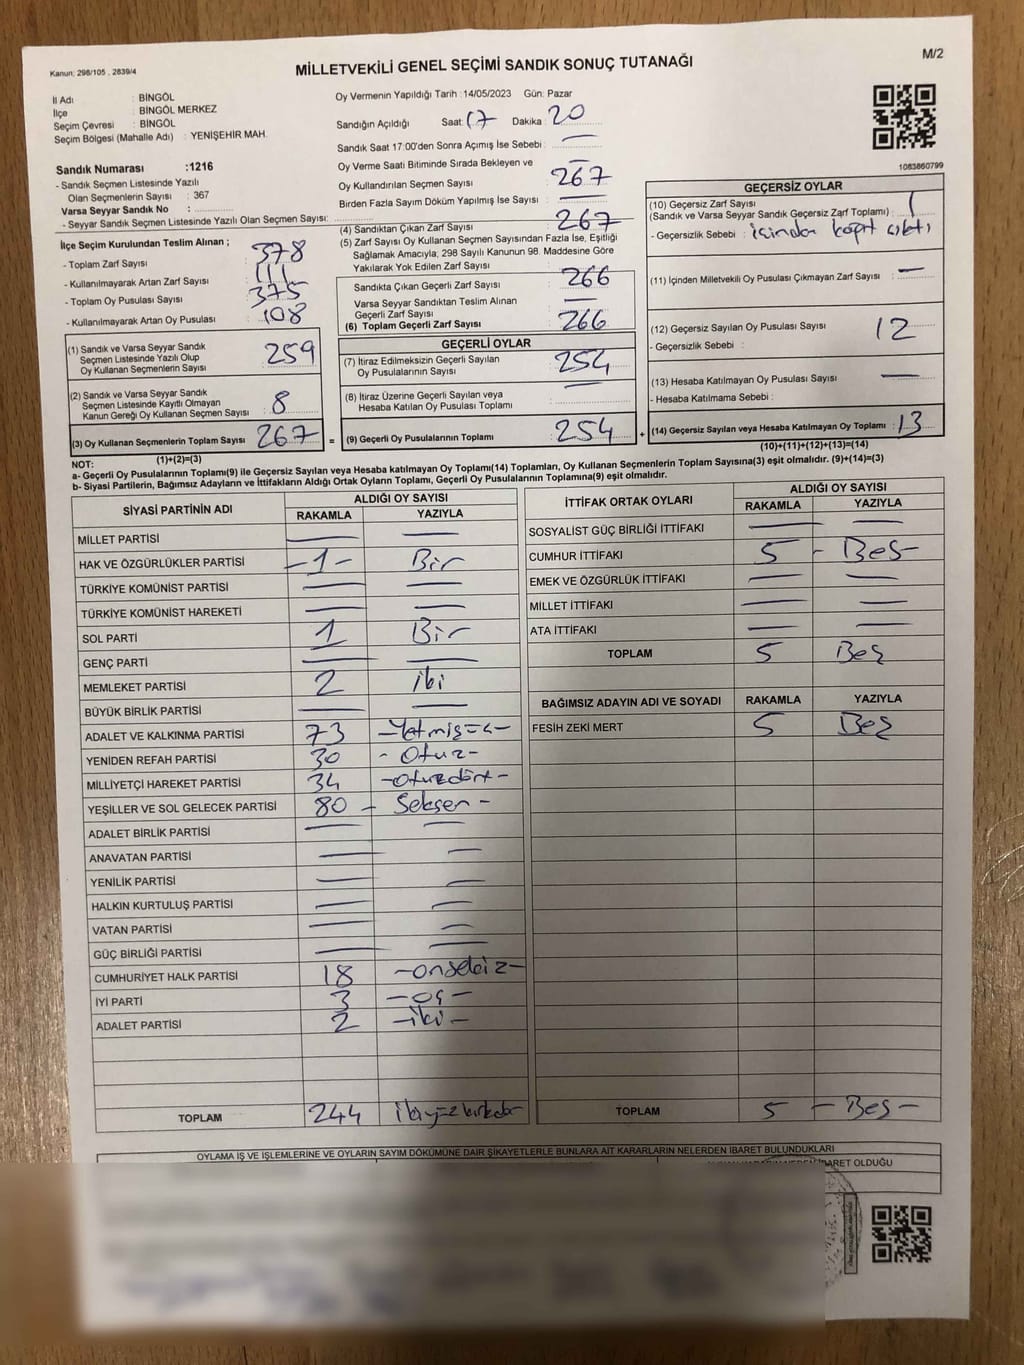 Kanun; 298/105 , 2839/4
MİLLETVEKİLİ GENEL SEÇİMİ SANDIK SONUÇ TUTANAĞI
M/2
İl Adı : BİNGÖL
İlçe : BİNGÖL MERKEZ
Seçim Çevresi : BİNGÖL
Seçim Bölgesi (Mahalle Adı) : YENİŞEHİR MAH.
Sandık Numarası :1216
- Sandık Seçmen Listesinde Yazılı
Olan Seçmenlerin Sayısı : 367
Varsa Seyyar Sandık No :
- Seyyar Sandık Seçmen Listesinde Yazılı Olan Seçmen Sayısı:
Oy Vermenin Yapıldığı Tarih :14/05/2023 Gün: Pazar
Sandığın Açıldığı Saat: 17 Dakika: 20
Sandık Saat 17:00'den Sonra Açımış İse Sebebi : —
Oy Verme Saati Bitiminde Sırada Bekleyen ve
Oy Kullandırılan Seçmen Sayısı : —
Birden Fazla Sayım Döküm Yapılmış İse Sayısı : 267
1083860799
İlçe Seçim Kurulundan Teslim Alınan ;
- Toplam Zarf Sayısı : 378
- Kullanılmayarak Artan Zarf Sayısı : 111
- Toplam Oy Pusulası Sayısı : 375
- Kullanılmayarak Artan Oy Pusulası : 108
(1) Sandık ve Varsa Seyyar Sandık
Seçmen Listesinde Yazılı Olup
Oy Kullanan Seçmenlerin Sayısı : 259
(2) Sandık ve Varsa Seyyar Sandık
Seçmen Listesinde Kayıtlı Olmayan
Kanun Gereği Oy Kullanan Seçmen Sayısı : 8
(3) Oy Kullanan Seçmenlerin Toplam Sayısı : 267
(1)+(2)=(3)
(4) Sandıktan Çıkan Zarf Sayısı : 267
(5) Zarf Sayısı Oy Kullanan Seçmen Sayısından Fazla İse, Eşitliği
Sağlamak Amacıyla, 298 Sayılı Kanunun 98. Maddesine Göre
Yakılarak Yok Edilen Zarf Sayısı :
Sandıkta Çıkan Geçerli Zarf Sayısı : 266
Varsa Seyyar Sandıktan Teslim Alınan
Geçerli Zarf Sayısı : —
(6) Toplam Geçerli Zarf Sayısı : 266
GEÇERLİ OYLAR
(7) İtiraz Edilmeksizin Geçerli Sayılan
Oy Pusulalarının Sayısı : 254
(8) İtiraz Üzerine Geçerli Sayılan veya
Hesaba Katılan Oy Pusulası Toplamı : —
= (9) Geçerli Oy Pusulalarının Toplamı : 254
GEÇERSİZ OYLAR
(10) Geçersiz Zarf Sayısı
(Sandık ve Varsa Seyyar Sandık Geçersiz Zarf Toplamı) : 1
- Geçersizlik Sebebi : içinden
(11) İçinden Milletvekili Oy Pusulası Çıkmayan Zarf Sayısı : —
(12) Geçersiz Sayılan Oy Pusulası Sayısı : 12
- Geçersizlik Sebebi :
(13) Hesaba Katılmayan Oy Pusulası Sayısı : —
- Hesaba Katılmama Sebebi :
+ (14) Geçersiz Sayılan veya Hesaba Katılmayan Oy Toplamı : 13
(10)+(11)+(12)+(13)=(14)
NOT:
a- Geçerli Oy Pusulalarının Toplamı(9) ile Geçersiz Sayılan veya Hesaba katılmayan Oy Toplamı(14) Toplamları, Oy Kullanan Seçmenlerin Toplam Sayısına(3) eşit olmalıdır. (9)+(14)=(3)
b- Siyasi Partilerin, Bağımsız Adayların ve İttifakların Aldığı Ortak Oyların Toplamı, Geçerli Oy Pusulalarının Toplamına(9) eşit olmalıdır.
SİYASİ PARTİNİN ADI ALDIĞI OY SAYISI
RAKAMLA YAZIYLA
MİLLET PARTİSİ — —
HAK VE ÖZGÜRLÜKLER PARTİSİ -1- Bir
TÜRKİYE KOMÜNİST PARTİSİ — —
TÜRKİYE KOMÜNİST HAREKETİ — —
SOL PARTİ 1 Bir
GENÇ PARTİ — —
MEMLEKET PARTİSİ 2 iki
BÜYÜK BİRLİK PARTİSİ — —
ADALET VE KALKINMA PARTİSİ 73 -Yetmişüç-
YENİDEN REFAH PARTİSİ 30 - Otuz-
MİLLİYETÇİ HAREKET PARTİSİ 34 -Otuzdört-
YEŞİLLER VE SOL GELECEK PARTİSİ 80 - Seksen -
ADALET BİRLİK PARTİSİ — —
ANAVATAN PARTİSİ — —
YENİLİK PARTİSİ — —
HALKIN KURTULUŞ PARTİSİ — —
VATAN PARTİSİ — —
GÜÇ BİRLİĞİ PARTİSİ — —
CUMHURİYET HALK PARTİSİ 18 -onsekiz-
İYİ PARTİ 3 -üç-
ADALET PARTİSİ 2 -iki-
TOPLAM 244
İTTİFAK ORTAK OYLARI ALDIĞI OY SAYISI
RAKAMLA YAZIYLA
SOSYALİST GÜÇ BİRLİĞİ İTTİFAKI — —
CUMHUR İTTİFAKI 5 - Beş-
EMEK VE ÖZGÜRLÜK İTTİFAKI — —
MİLLET İTTİFAKI — —
ATA İTTİFAKI — —
TOPLAM 5 Beş
BAĞIMSIZ ADAYIN ADI VE SOYADI RAKAMLA YAZIYLA
FESİH ZEKİ MERT 5 Beş
TOPLAM 5 - Beş -
OYLAMA İŞ VE İŞLEMLERİNE VE OYLARIN SAYIM DÖKÜMÜNE DAİR ŞİKAYETLERLE BUNLARA AİT KARARLARIN NELERDEN İBARET BULUNDUKLARI
İBARET OLDUĞU